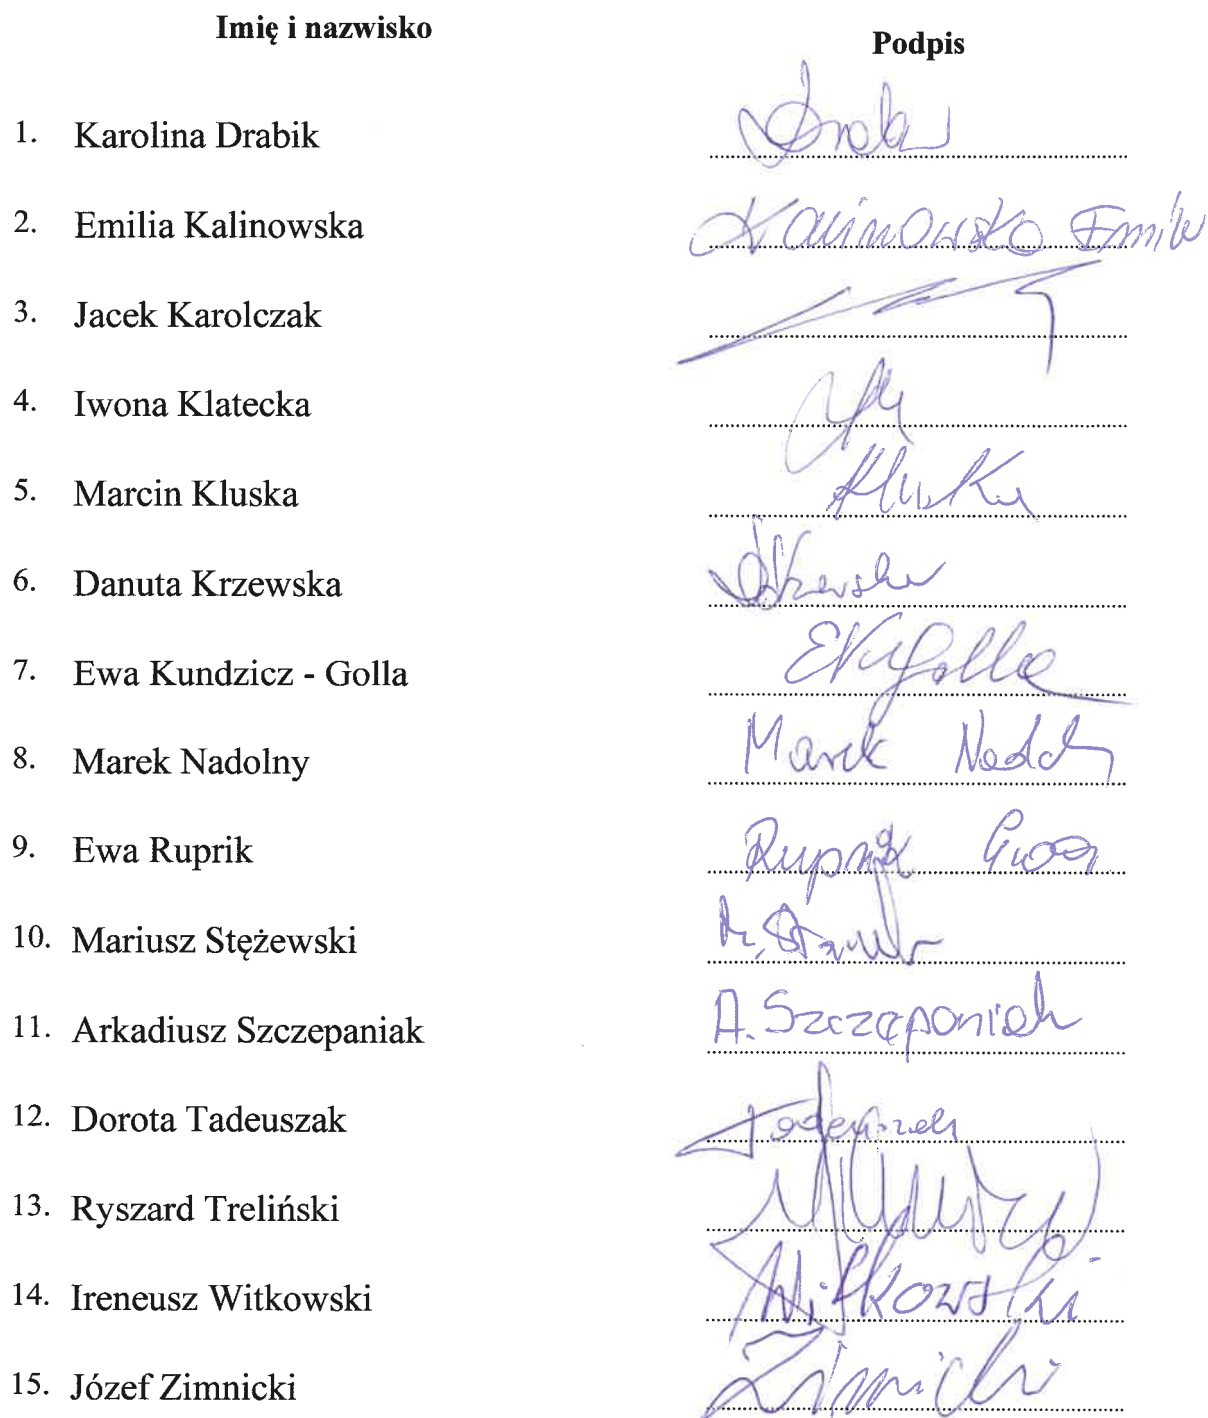 Imię i nazwisko Podpis
1. Karolina Drabik
2. Emilia Kalinowska Kalinowska Emilia
3. Jacek Karolczak
4. Iwona Klatecka
5. Marcin Kluska Kluska
6. Danuta Krzewska DKrzewska
7. Ewa Kundzicz - Golla EKuGolla
8. Marek Nadolny Marek
9. Ewa Ruprik Ewa
10. Mariusz Stężewski
11. Arkadiusz Szczepaniak A. Szczepaniak
12. Dorota Tadeuszak Tadeuszak
13. Ryszard Treliński
14. Ireneusz Witkowski Witkowski
15. Józef Zimnicki Zimnicki